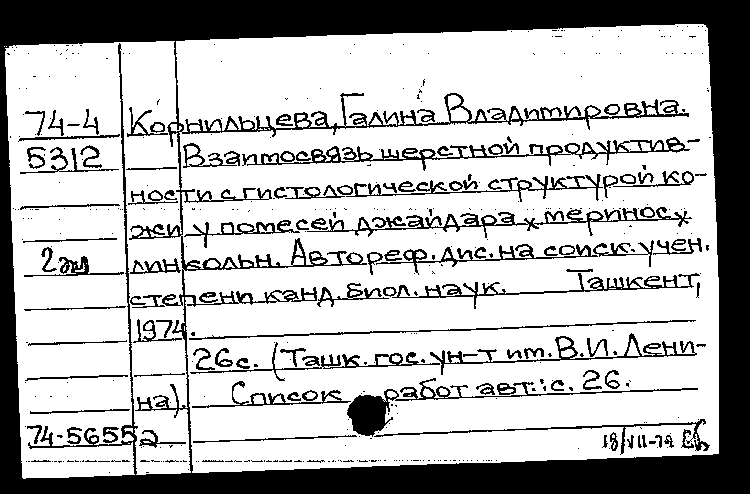 74-4 Корнильцева, Галина Владимировна.
5312 Взаимосвязь шерстной продуктив-
ности с гистологической структурой ко-
жи у помесей джайдара х меринос х
2 экз линкольн. Автореф. дис. на соиск. учен.
степени канд. биол. наук. Ташкент,
1974.
26с. (Ташк. гос. ун-т им. В.И. Лени-
на). Список работ авт.: с. 26.
74-56552
18/VII-74